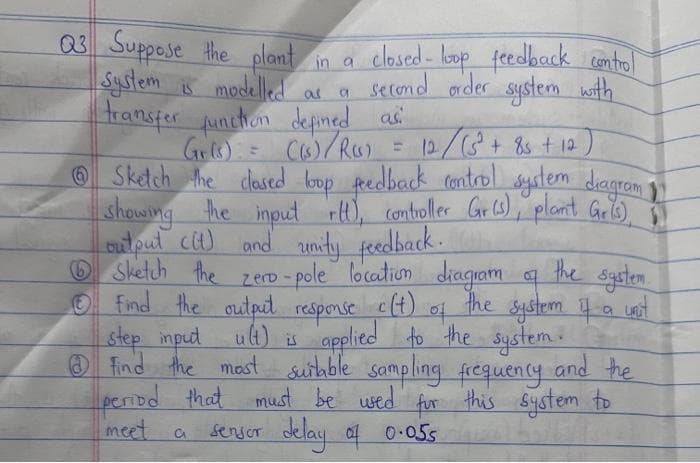 Q3 Suppose the plant in a closed-loop feedback control
System is modelled as a second order system with
transfer function defined as:
Gr(s) = C(s)/R(s) = 12/(s² + 8s + 12)
ⓐ Sketch the closed loop feedback control system diagram
showing the input r(t), controller Gr(s), plant Gr(s),
output c(t) and unity feedback.
ⓑ Sketch the zero-pole location diagram of the system.
ⓒ Find the output response c(t) of the system if a unit
step input u(t) is applied to the system.
ⓓ Find the most suitable sampling frequency and the
period that must be used for this system to
meet a sensor delay of 0.05s